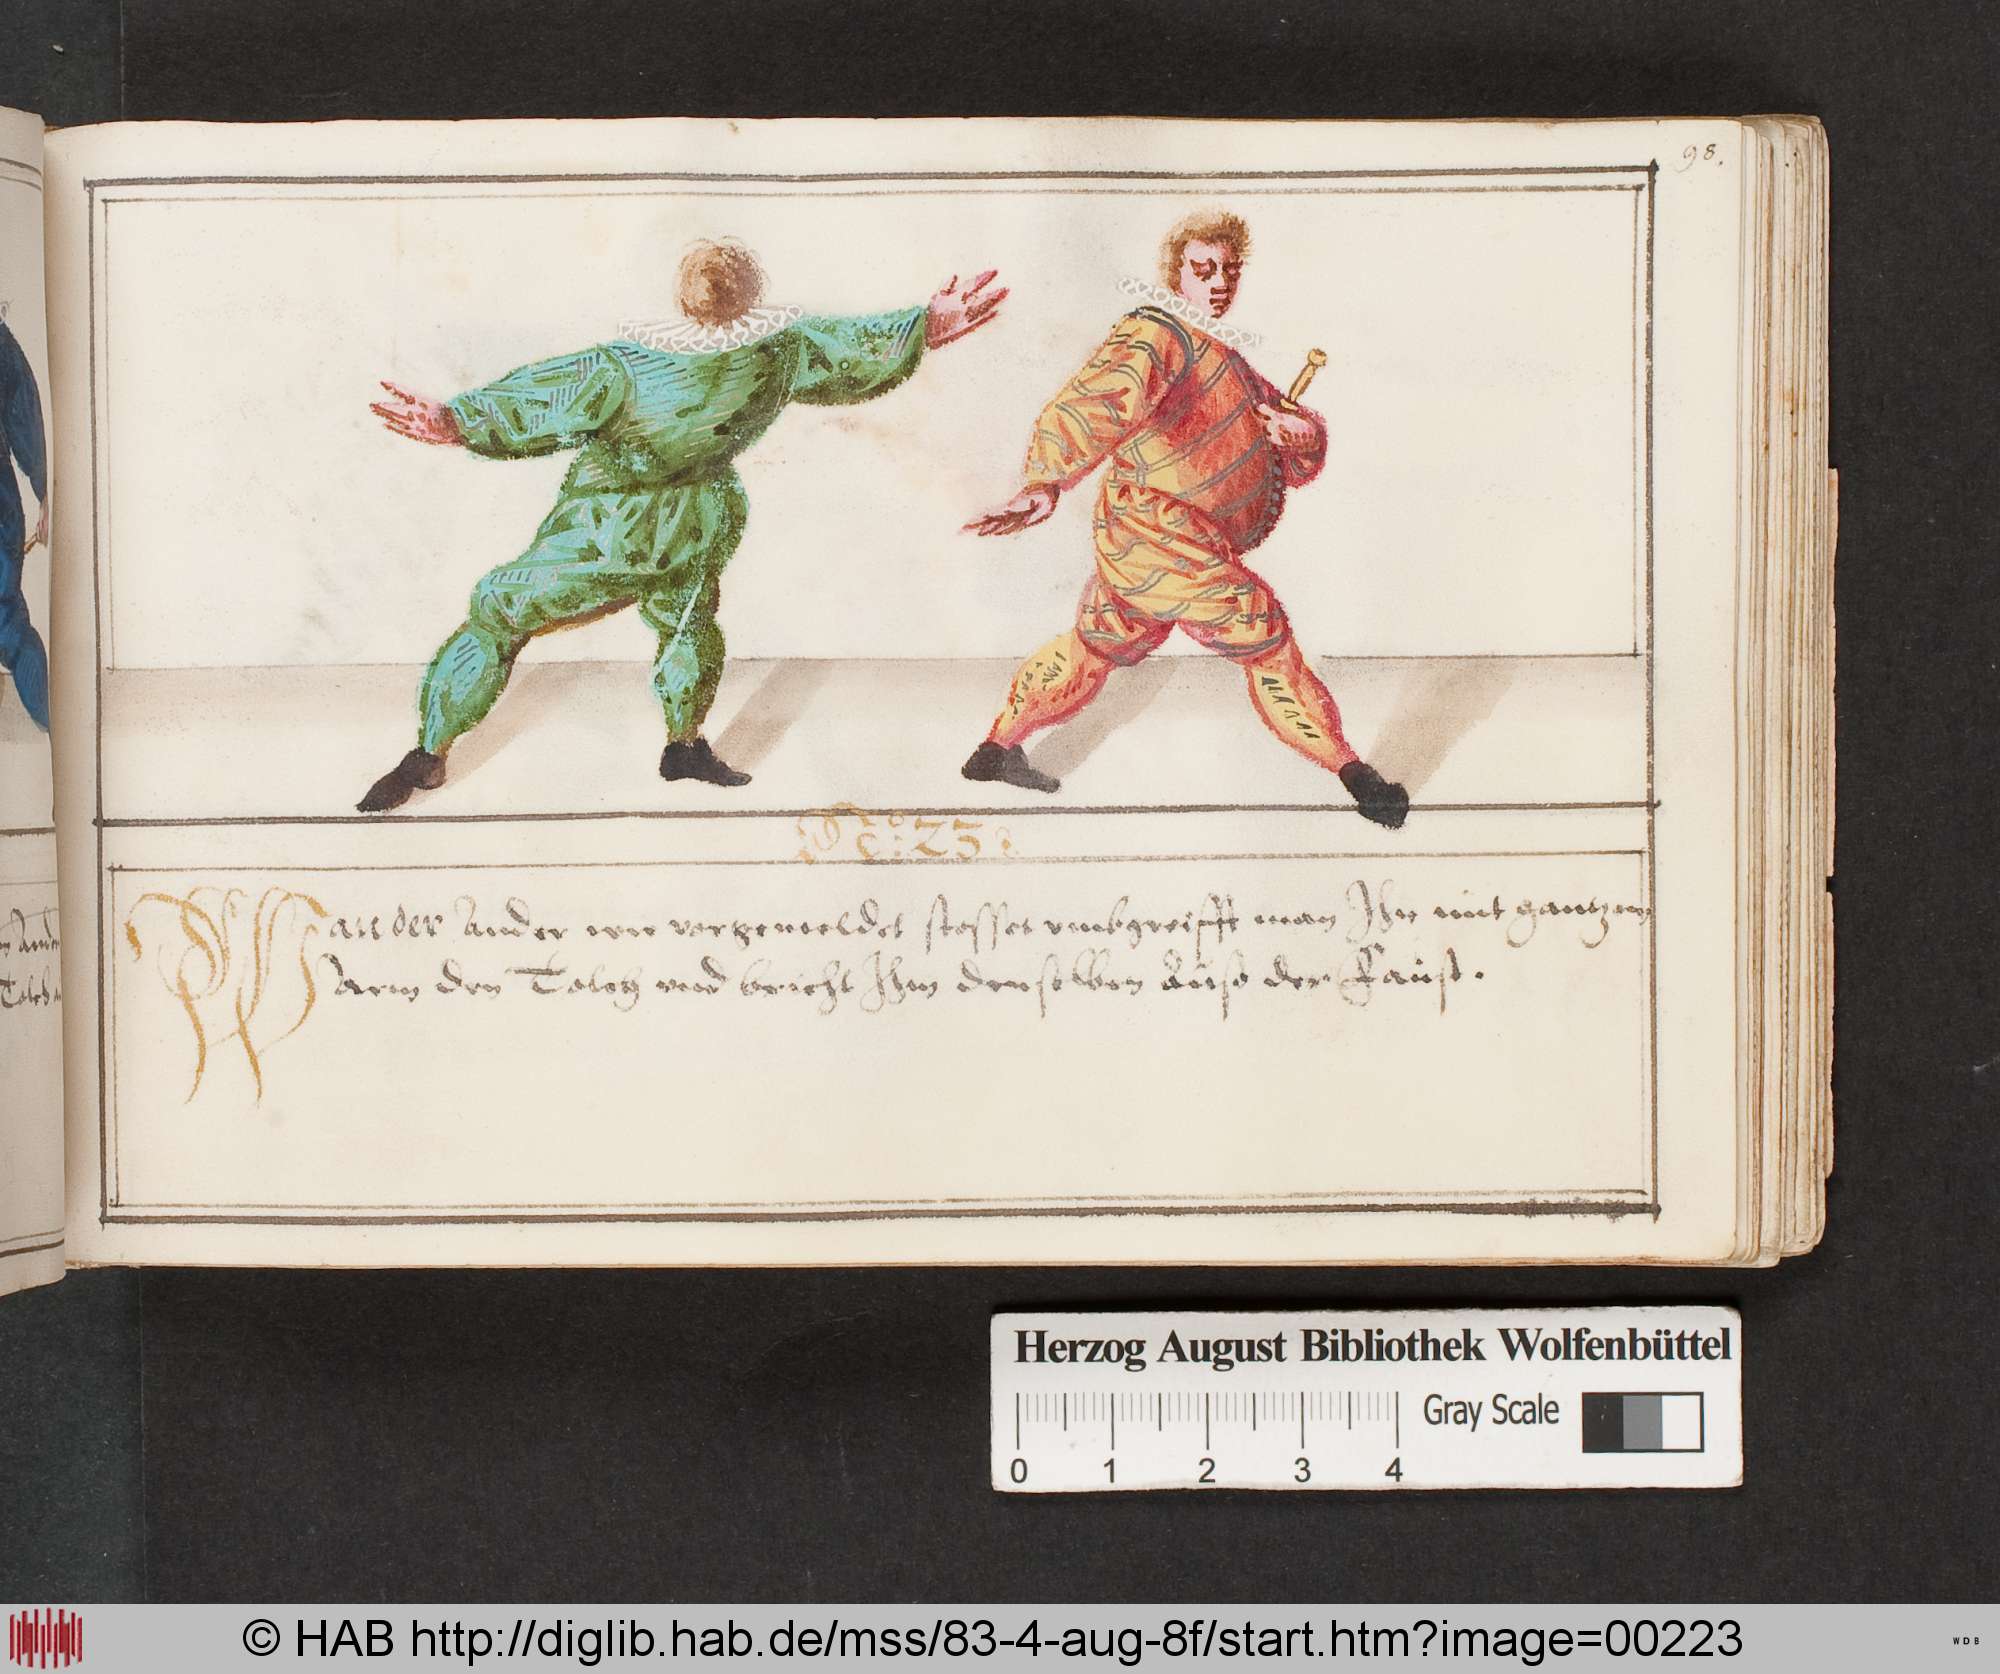 98.
No: 23.
Wan der Ander wie vorgemeldet stosset vmbgreifft man Ihn mit gantzem
Arm den Tolch vnd bricht Ihm denselben Auß der Faust.
Ander
Tolch
Herzog August Bibliothek Wolfenbüttel
Gray Scale
0 1 2 3 4
© HAB http://diglib.hab.de/mss/83-4-aug-8f/start.htm?image=00223
WDB